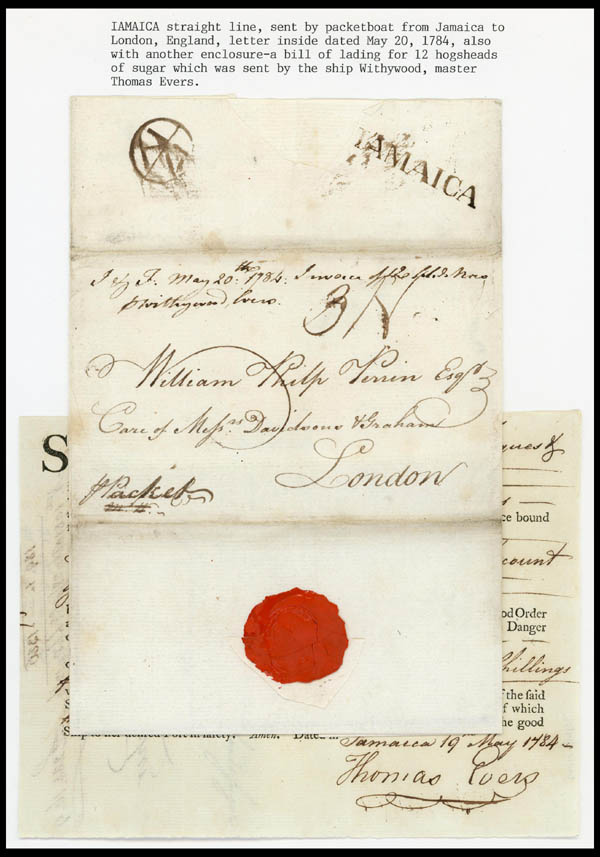 IAMAICA straight line, sent by packetboat from Jamaica to
London, England, letter inside dated May 20, 1784, also
with another enclosure-a bill of lading for 12 hogsheads
of sugar which was sent by the ship Withywood, master
Thomas Evers.
IAMAICA
J & F. May 20th 1784. Invoice of
Withywood, Evers.
3/N
William Philp Perrin Esqr
Care of Messrs Davidsons & Graham
London
Packet
S
ques &
ce bound
count
od Order
Danger
Shillings
f the ſaid
f which
he good
Ship to her deſired Port in ſafety. Amen. Dated in
Jamaica 19th May 1784
Thomas Evers